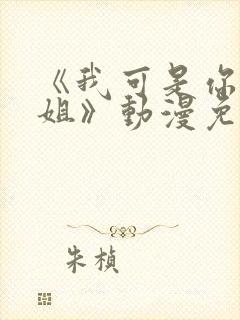 《我可是你
姐》動漫免
朱楨